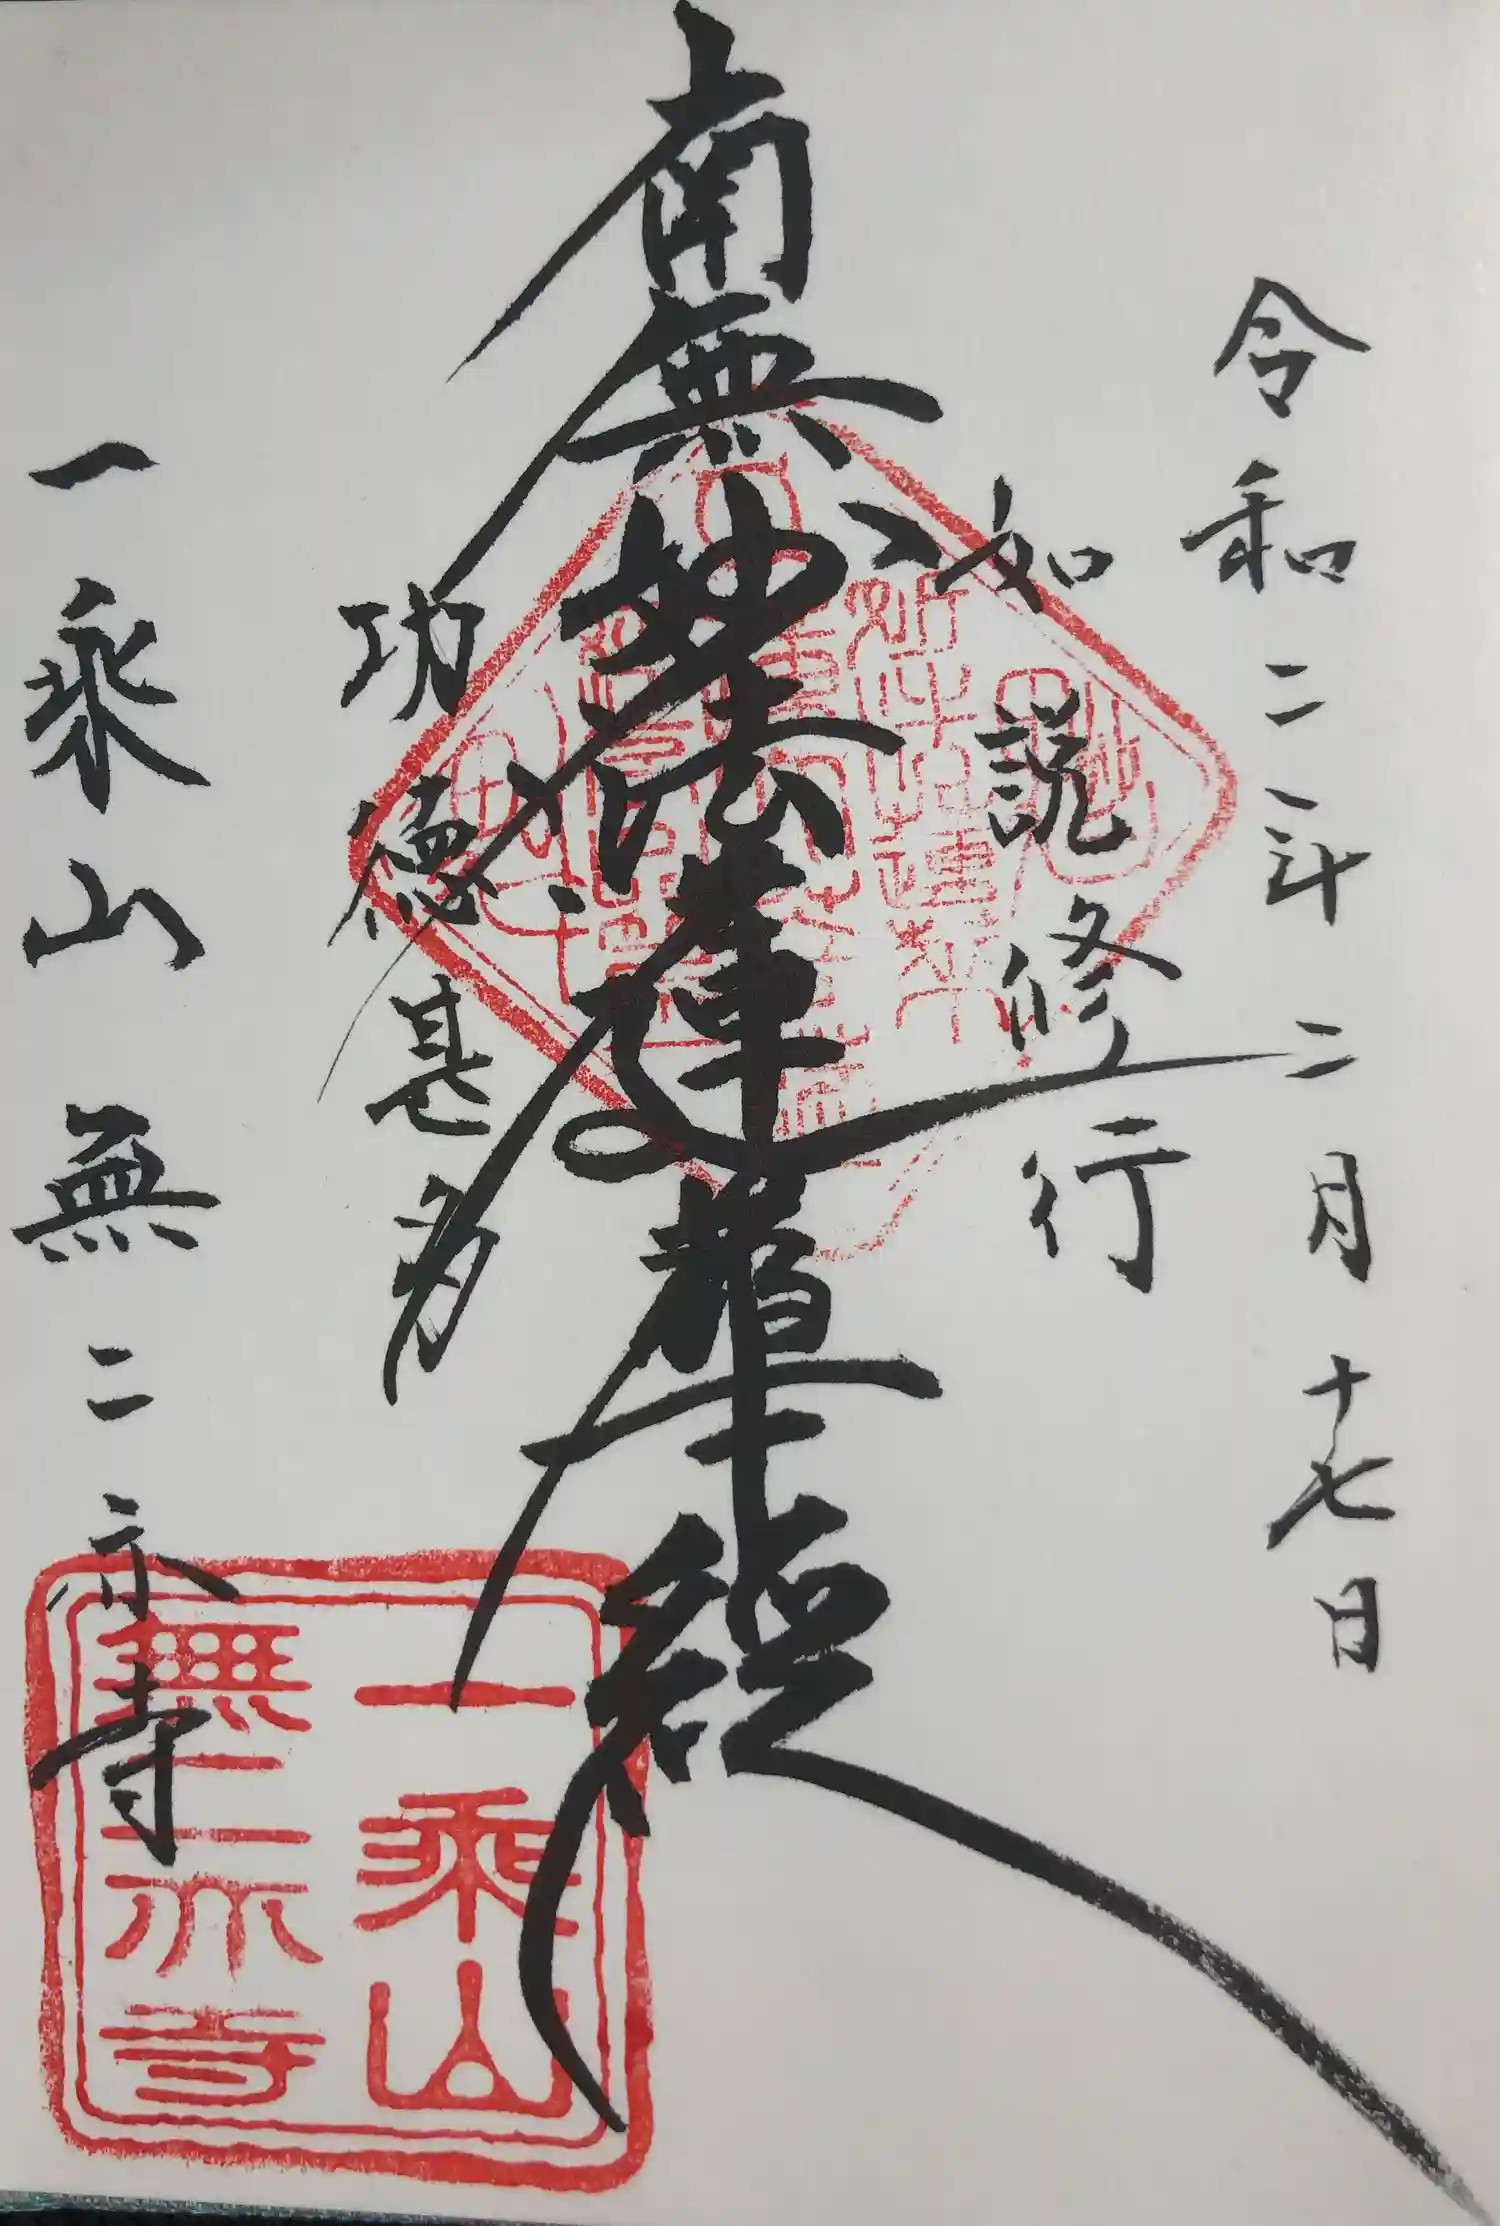 令和二年二月十七日
如説修行
南無妙法蓮華経
功徳甚多
一乗山無二亦寺
一乗山
無二亦寺